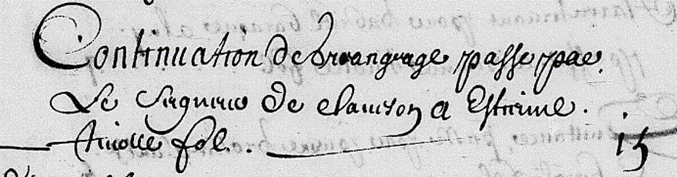 Continuation de brvangrage passe par
Le seigneur de clauson a Estienne
fol. 15